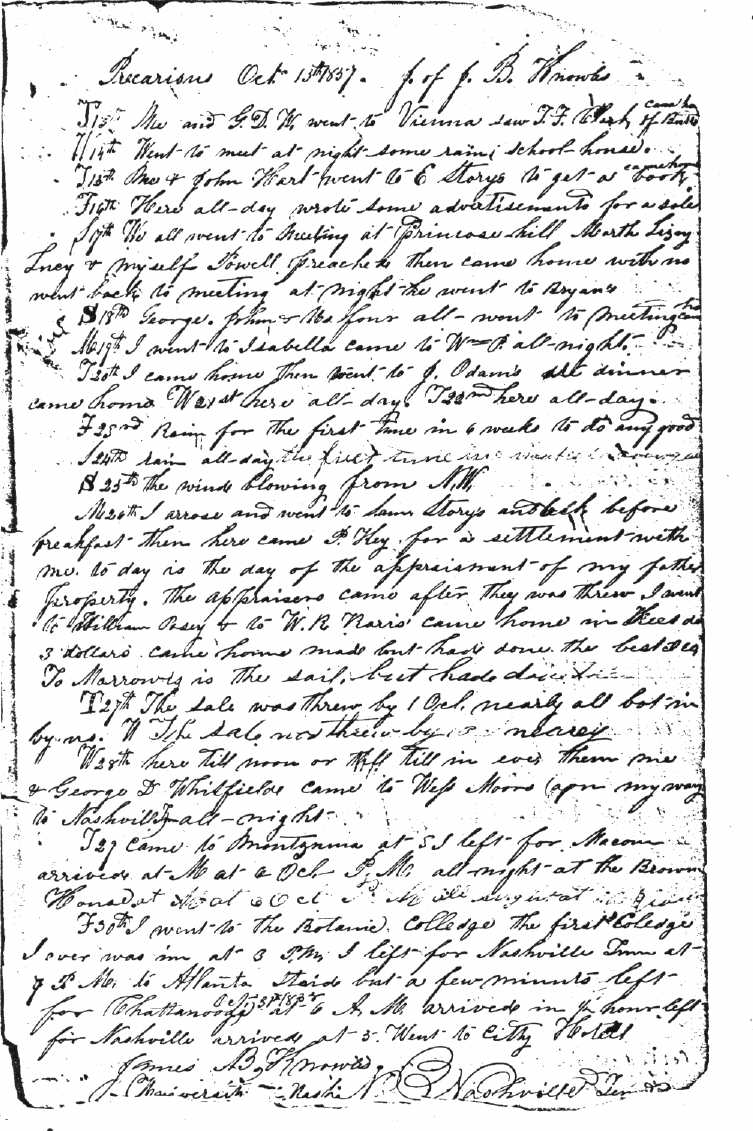 Precarious Oct 13th 1857. J. of J. B. Knowles
T 13th Me and G. D. W. went to Vienna saw T. F. came ho
W 14th Went to meet at night some rain, school-house.
T 15th Me & John Hart went to E Storys to get a book came home
F 16th Here all-day wrote some advertisements for a sale
S 17th We all went to Meeting at Princose-hill Marth Lizay
Lucy & myself Powell preached then came home with no
went back to meeting at night he went to Bryan's
S 18th George. John & Wa four all-went to meeting
M 19th I went to Isabella came to W P. all-night.
T 20th I came home then went to J. Odam's dinner
came home W 21st here all-day. T 22nd here all-day.
F 23rd Rain for the first time in 6 weeks to do any good
S 24th rain all-day the first time in
S 25th the winds blowing from N.W.
M 26th I arose and went to Storys before
breakfast then here came P. Key for a settlement with
me. to day is the day of the appraisment of my father
property. the appraisers came after they was threw I went
to William Posey & to W. R. Harris came home in
3 dollars came home made but had done the best I co
To Marrow is the sail, but had
T 27th The sale was threw by 1 Ocl. nearly all bot in
by us. The sale was threw by nearly
W 28th here till noon or till in ever them me
& George D Whitfields came to Wess Moors (apn my way
to Nashville all-night
T 29 came to Montzuma at 5 I left for Macon
arrived at M at 6 Ocl P. M. all-night at the Brown
House at M at 6 Ocl P. M all night at
F 30th I went to the Botanic Colledge the first Coledge
I ever was in at 3 P.M. I left for Nashville Tenn at
7 P M. to Atlanta staid but a few minuts left
for Chattanooga Oct 31st 1857 at 6 A. M. arrived in ½ hour left
for Nashville arrived at 5. Went to Citty Hotell
James B. Knowles
Nash N. B. Nashville Ten